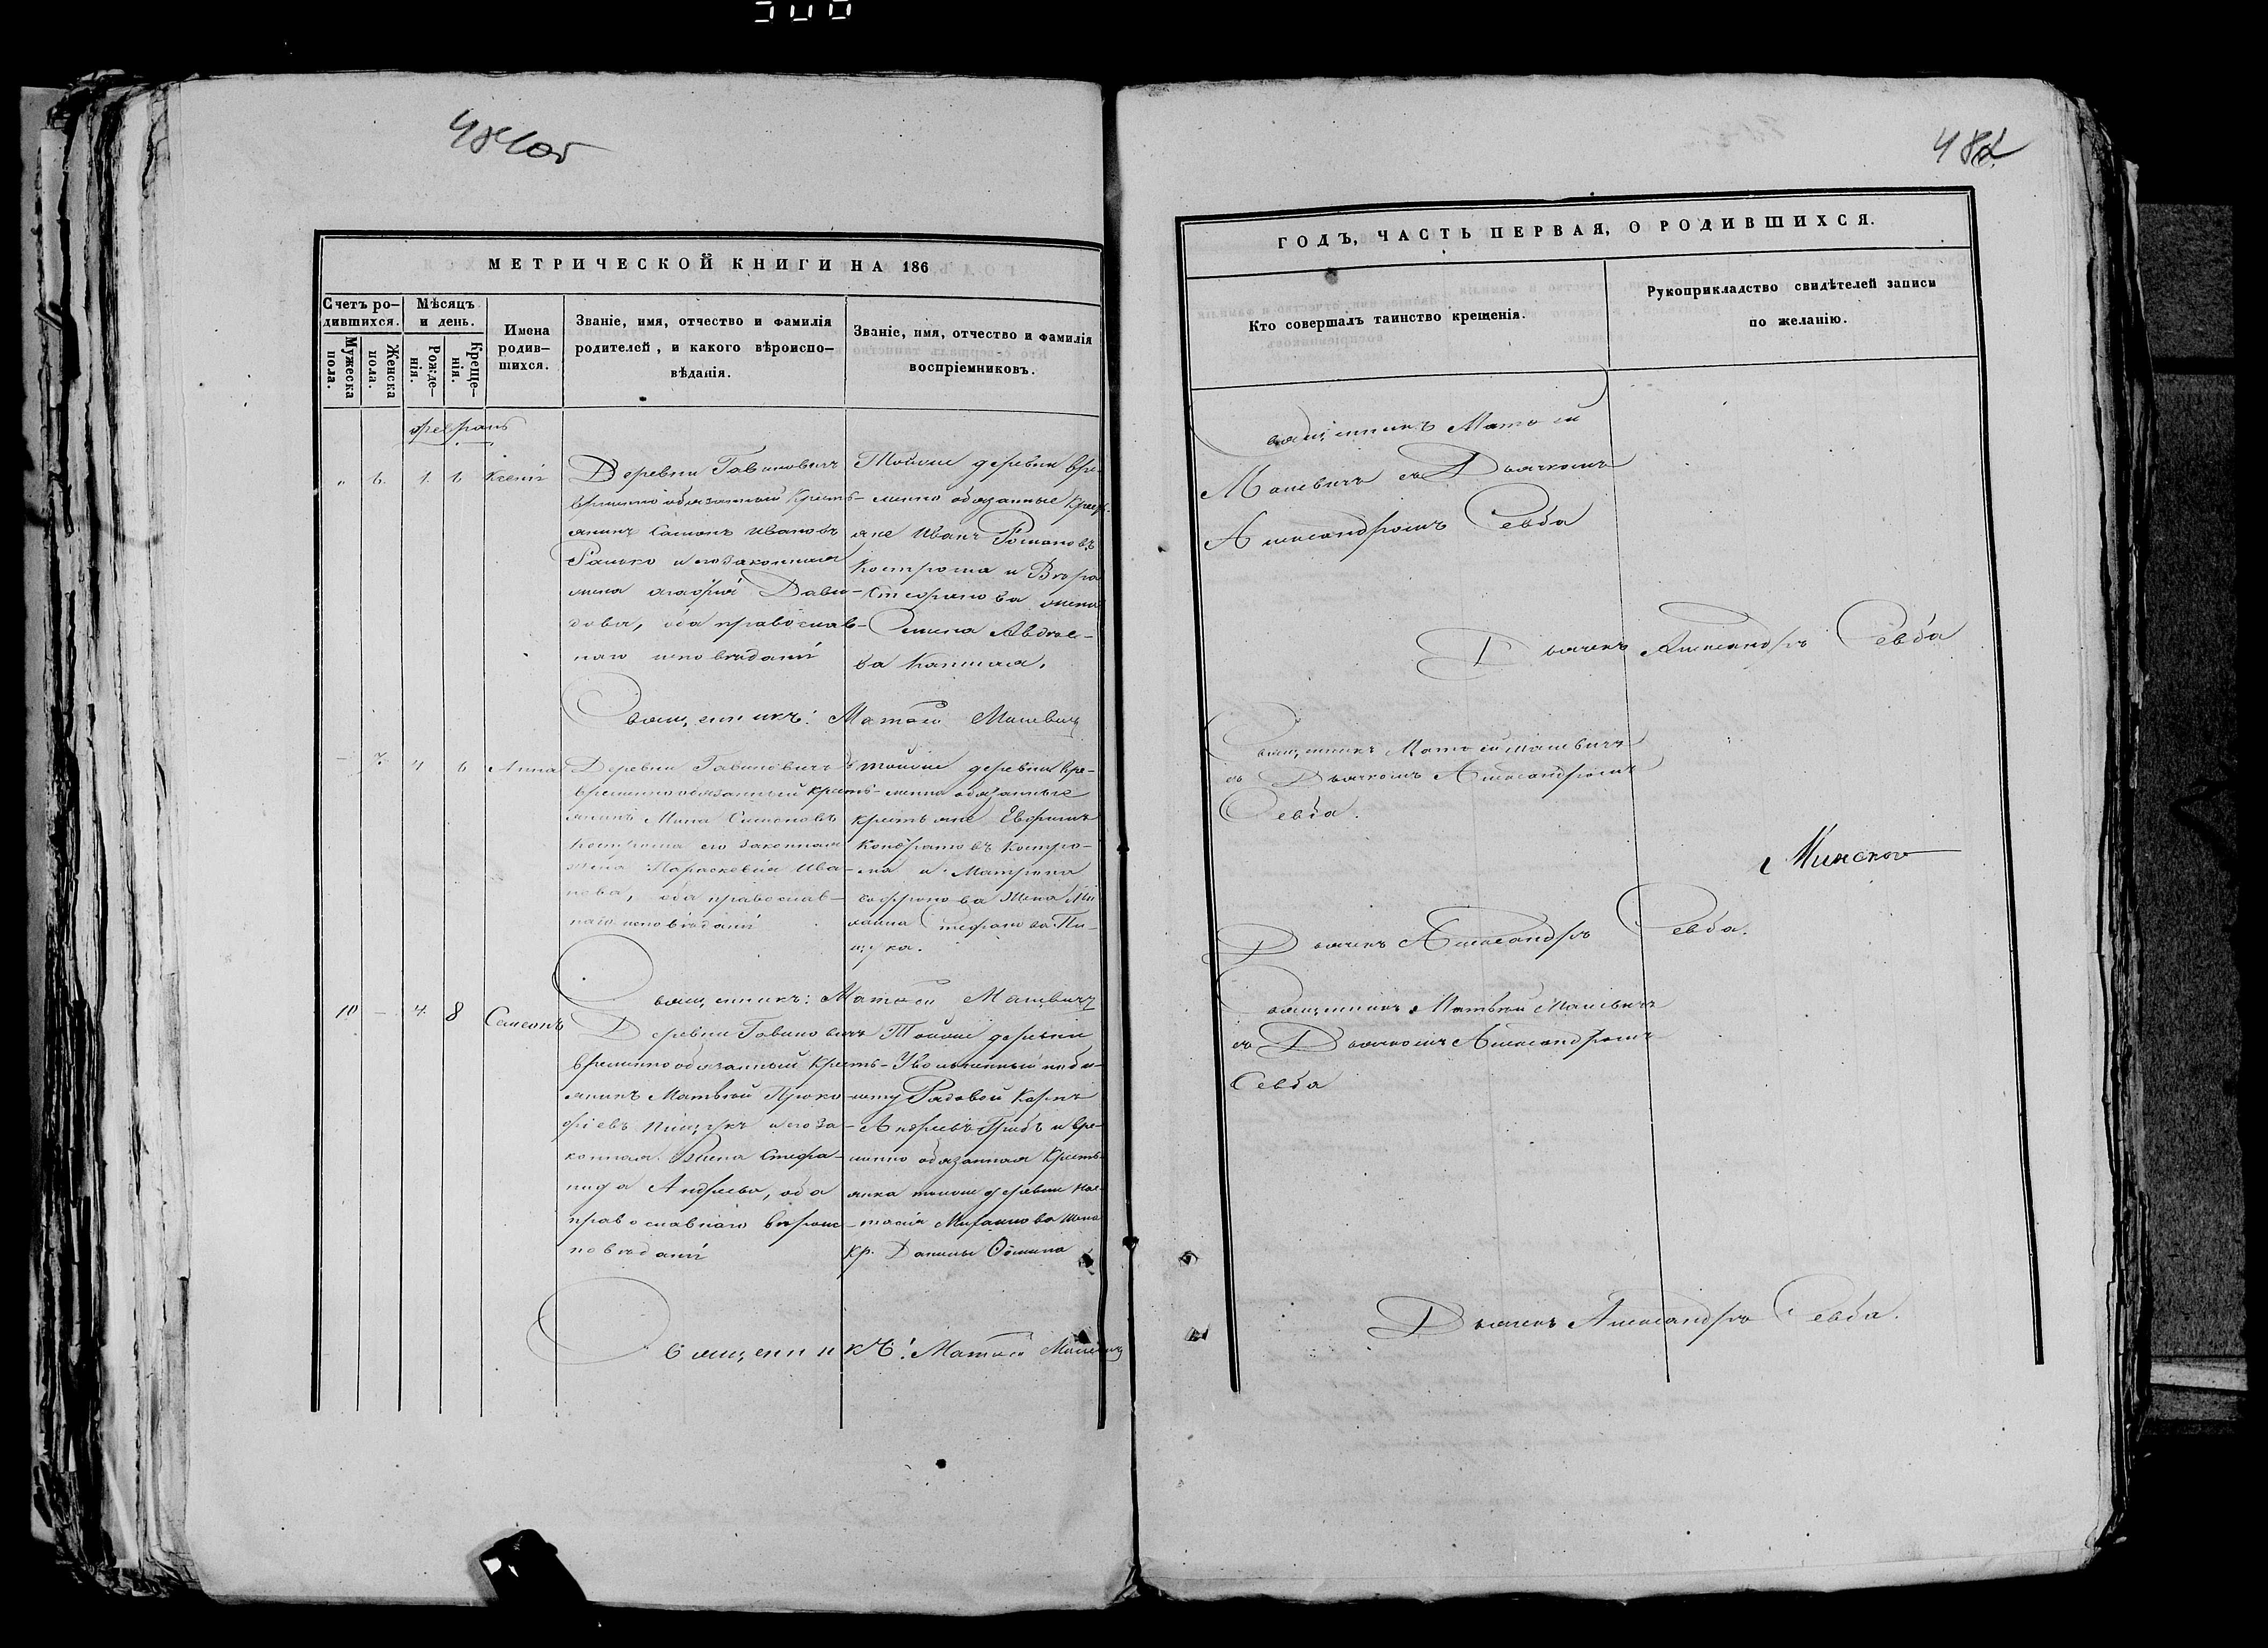 481об
МЕТРИЧЕСКОЙ КНИГИ НА 186
Счетъ ро-
дившихся.
Мужеска
пола.
Женска
пола.
Мѣсяцъ
и день.
Рожде-
нія.
Креще-
нія.
Имена
родив-
шихся.
Званіе, имя, отчество и фамилія
родителей, и какого вѣроиспо-
вѣданія.
Званіе, имя, отчество и фамилія
воспріемниковъ.
6. 1. 6 Ксенія
Деревни Гавиновичъ
временно обязанный кресть-
янинъ Самонъ Ивановъ
и его законная
жена Дави-
дова, оба православ-
наго исповѣданія
Тойже деревни вре-
менно обязанные кресть-
яне Иванъ Романовъ
Кострома и Вѣра
Стефанова жена
Семена
Священникъ: Матѳей Малевичъ
7. 4 6 Анна
Деревни Гавиновичъ
временно обязанный кресть-
янинъ Мина Симоновъ
Кострома его законная
жена Параскевія Ива-
нова, оба православ-
наго исповѣданія
тойже деревни вре-
менно обязанные
крестьяне Ефимъ
Кондратовъ Костро-
ма и Матрона
Софронова жена Ми-
хаила Стефанова Пи-
щука.
Священникъ: Матѳей Малевичъ
10 — 4. 8 Самсонъ
Деревни Гавиновичъ
временно обязанный кресть-
янинъ Матвей Проко-
фіевъ Пищукъ и его за-
конная жена Стефа-
нида Андреева, оба
православнаго вѣроис-
повѣданія
Тойже деревни
Уволенный по би-
лету Рядовой Карпъ
Андреевъ Грибъ и вре-
менно обязанная кресть-
янка тойже деревни Нас-
тасія Михаилова жена
кр. Данилы
Священникъ: Матѳей Малевичъ
482
ГОДЪ, ЧАСТЬ ПЕРВАЯ, О РОДИВШИХСЯ.
Кто совершалъ таинство крещенія.
Рукоприкладство свидѣтелей записи
по желанію.
Священникъ Матѳей
Малевичъ съ Дьячкомъ
Александромъ Севба
Дьячекъ Александръ Севба
Священникъ Матѳей Малевичъ
съ Дьячкомъ Александромъ
Севба.
Минской
Дьячекъ Александръ Севба.
Священникъ Матвей Малевичъ
съ Дьячкомъ Александромъ
Севба
Дьячекъ Александръ Севба.